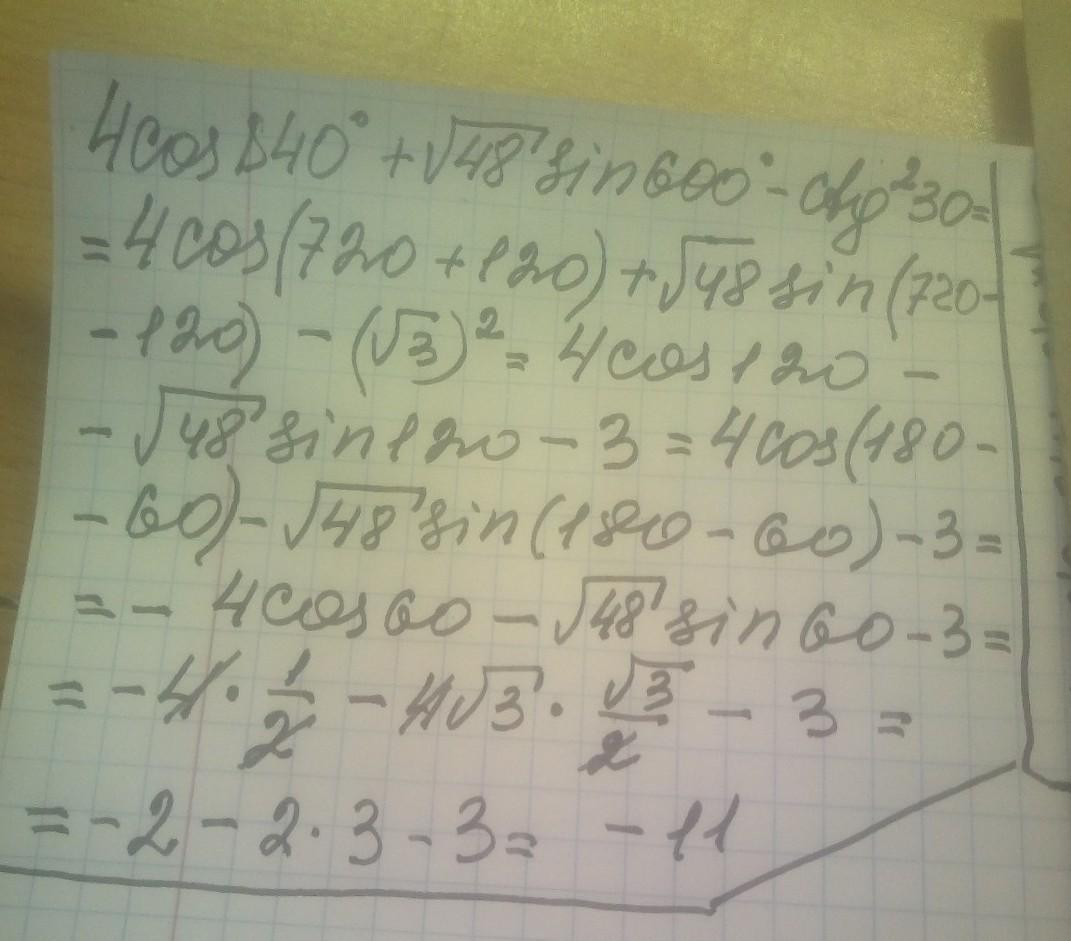 4cos840° + √48 sin600° - ctg²30=
= 4cos(720 + 120) + √48 sin(720-
- 120) - (√3)² = 4cos120 -
- √48 sin120 - 3 = 4cos(180-
- 60) - √48 sin(180 - 60) - 3 =
= - 4cos60 - √48 sin60 - 3 =
= - 4 · 1/2 - 4√3 · √3/2 - 3 =
= - 2 - 2 · 3 - 3 = - 11